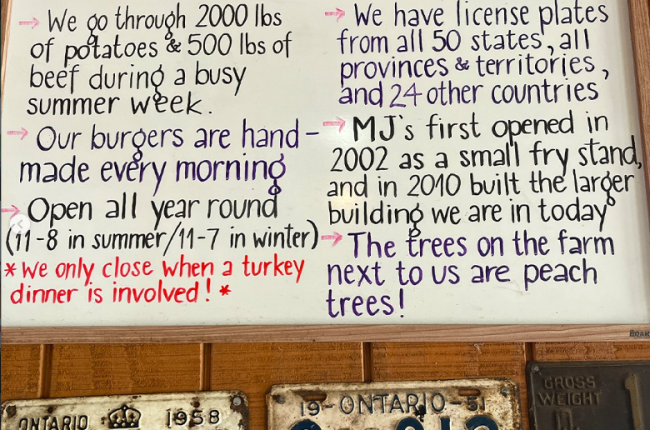 → We go through 2000 lbs
of potatoes & 500 lbs of
beef during a busy
summer week.
→ Our burgers are hand-
made every morning
→ Open all year round
(11-8 in summer/11-7 in winter)
*We only close when a turkey
dinner is involved! *
→ We have license plates
from all 50 states, all
provinces & territories,
and 24 other countries
→ MJ's first opened in
2002 as a small fry stand,
and in 2010 built the larger
building we are in today
→ The trees on the farm
next to us are peach
trees!
ONTARIO 1958
19-ONTARIO-51
GROSS
WEIGHT